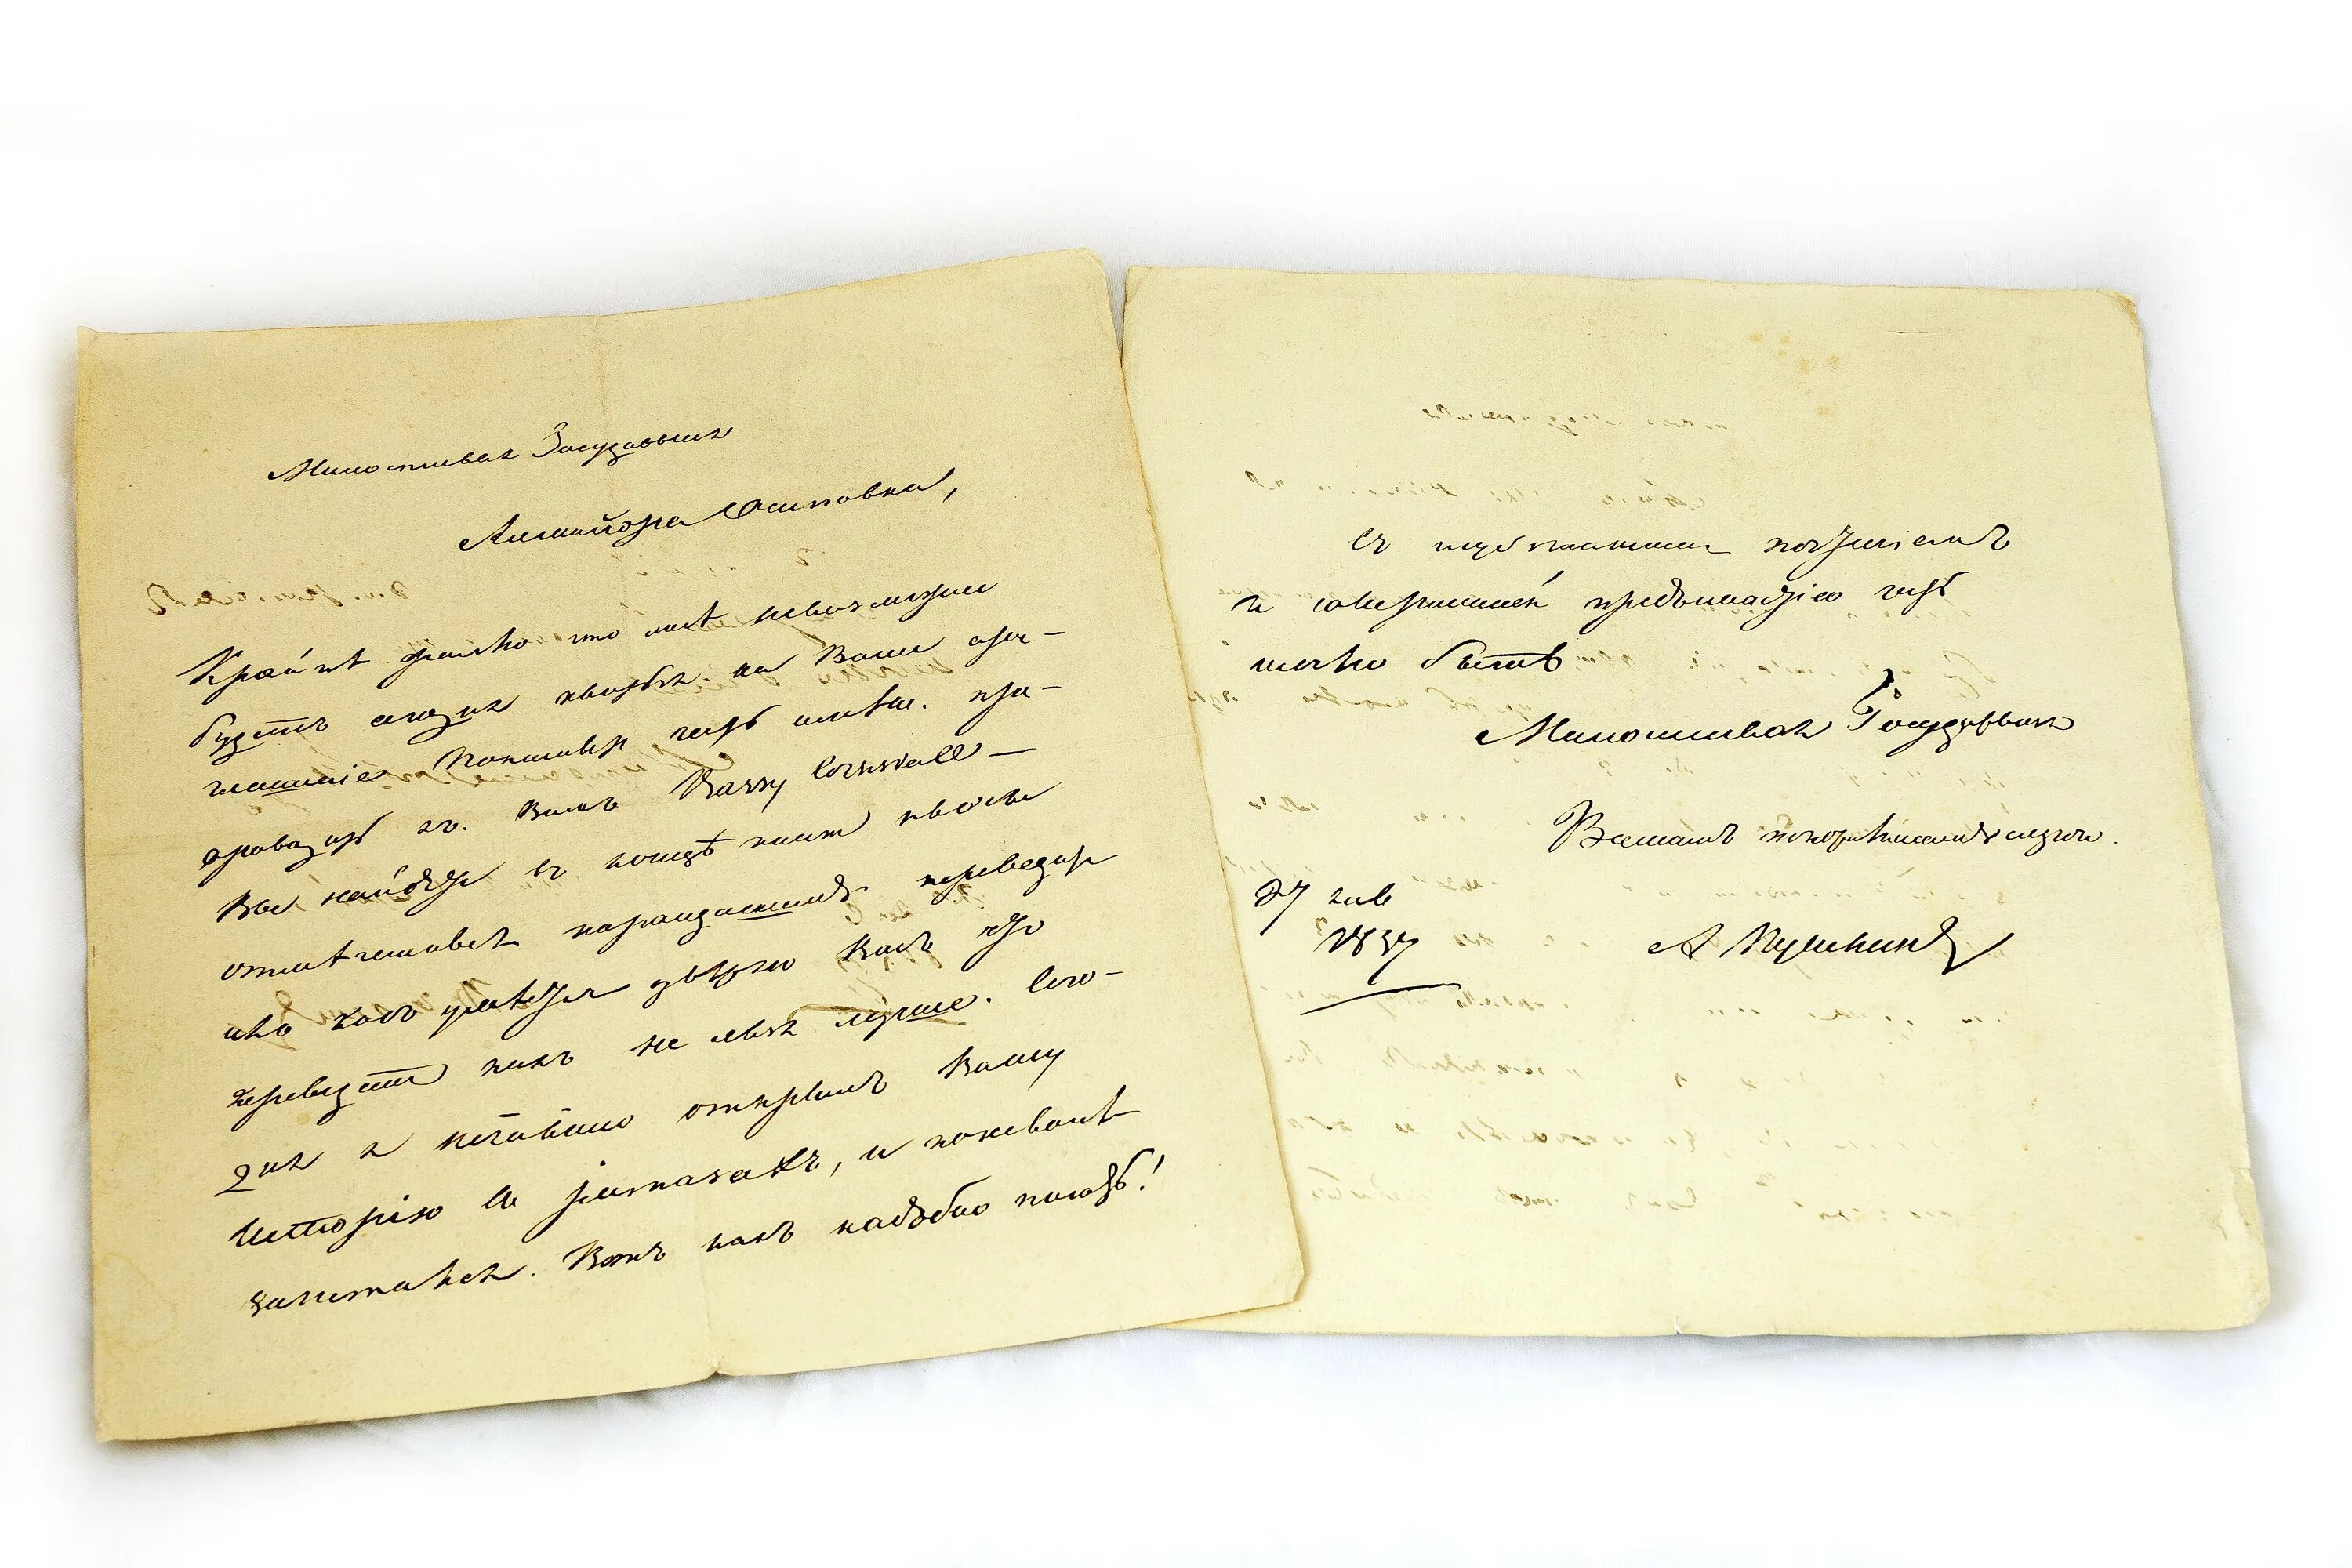 Милостивая Государыня
Александра Осиповна,
Крайнѣ жалѣю что мнѣ невозможно
будетъ сегодня явиться на Ваше при-
глашеніе. Покамѣстъ честь имѣю пре-
проводить къ Вамъ Barry Cornwall —
Вы найдете въ концѣ книги пьэсы
отмѣченныя карандашомъ, переведите
ихъ какъ умѣете увѣряю Васъ что
переведете какъ не льзя лучше. Сего-
дня я нечаянно открылъ Вашу
Исторію въ разсказахъ, и поневолѣ
зачитался. Вотъ какъ надобно писать!
Съ глубочайшимъ почтеніемъ
и совершенной преданностію честь
имѣю быть
Милостивая Государыня
Вашимъ покорнѣйшимъ слугою.
27 янв
1837
А Пушкинъ